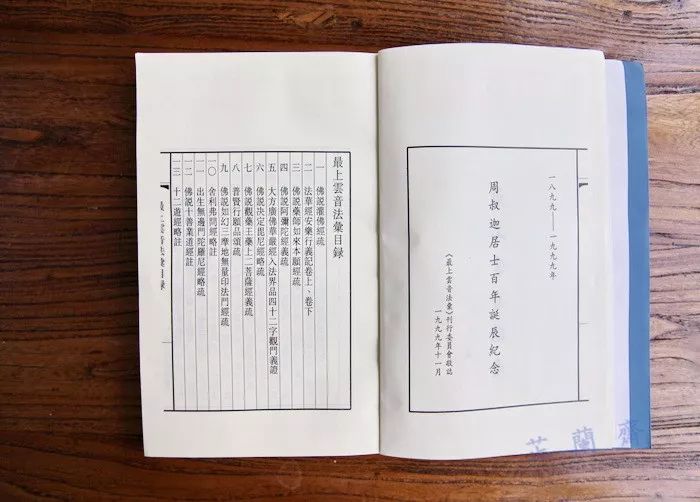 一八九九——一九九九年
周叔迦居士百年誕辰紀念
《最上雲音法彙》刊行委員會敬誌
一九九九年十一月
最上雲音法彙目録
一 佛説灌佛經疏
二 法華經安樂行義記卷上、卷下
三 佛説藥師如來本願經疏
四 佛説阿彌陀經義疏
五 大方廣佛華嚴經入法界品四十二字觀門義證
六 佛説决定毘尼經略疏
七 佛説觀藥王藥上二菩薩經義疏
八 普賢行願品頌疏
九 佛説如幻三摩地無量印法門經疏
一〇 舍利弗問經略註
一一 出生無邊門陀羅尼經略疏
一二 佛説十善業道經註
一三 十二道經略註
最上雲音法彙目録
芷蘭齋